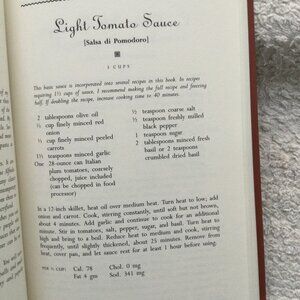 Light Tomato Sauce
[Salsa di Pomodoro]
3 CUPS
This basic sauce is incorporated into several recipes in this book. In recipes
requiring 1½ cups of sauce, I recommend making the full recipe and freezing
half. If doubling the recipe, increase cooking time to 40 minutes.
2 tablespoons olive oil
½ cup finely minced red
onion
½ cup finely minced peeled
carrots
1½ teaspoons minced garlic
One 28-ounce can Italian
plum tomatoes, coarsely
chopped, juice included
(can be chopped in food
processor)
½ teaspoon coarse salt
½ teaspoon freshly milled
black pepper
1 teaspoon sugar
2 tablespoons minced fresh
basil or 2 teaspoons
crumbled dried basil
In a 12-inch skillet, heat oil over medium heat. Turn heat to low; add
onion and carrots. Cook, stirring constantly, until soft but not brown,
about 4 minutes. Add garlic and continue to cook for an additional
minute. Stir in tomatoes, salt, pepper, sugar, and basil. Turn heat to
high and bring to a boil. Reduce heat to medium and cook, stirring
frequently, until slightly thickened, about 25 minutes. Remove from
heat, cover pan, and let sauce rest for at least 1 hour before using.
PER ½ CUP: Cal. 78 Chol. 0 mg
Fat 4 gm Sod. 341 mg